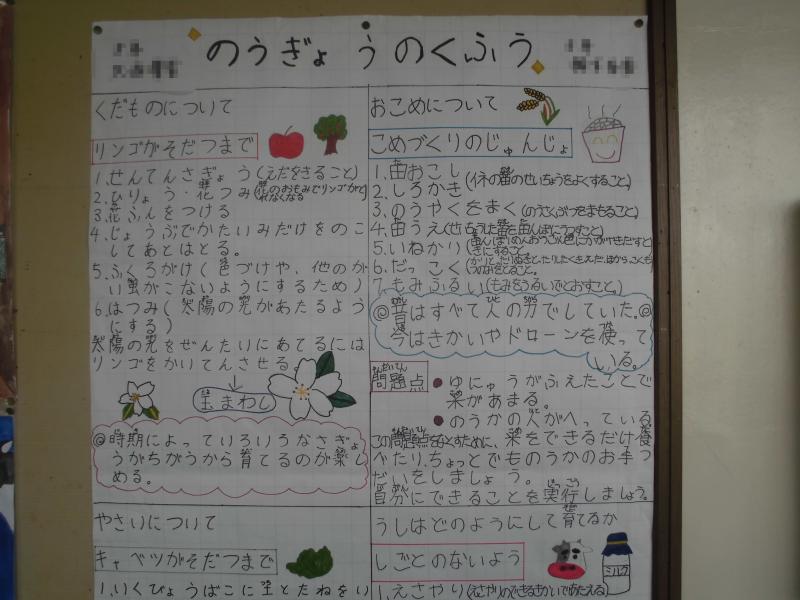 のうぎょうのくふう
くだものについて
リンゴがそだつまで
1.せんていさぎょう(えだをきること)
2.ひりょう・花つみ(花のおもみでリンゴがとれなくなる
3.花ふんをつける
4.じょうぶでかたいみだけをのこ
してあとはとる。
5.ふくろがけ(色づけや、他のが
い虫がこないようにするため)
6.はつみ(太陽の光があたるよう
にする)
太陽の光をぜんたいにあてるには
リンゴをかいてんさせる
玉まわし
@時期によっていろいろなさぎょ
うがちがうから育てるのが楽し
める。
おこめについて
こめづくりのじゅんじょ
1.田おこし(イネの苗のせいちょうをよくすること)
2.しろかき
3.のうやくをまく(のうさくぶつをまもること)
4.田うえ
5.いねかり
6.だっこく
7.もみふるい(もみをふるいでとおすこと。)
@昔はすべて人の力でしていた。@
今はきかいやドローンを使って
いる。
問題点
●ゆにゅうがふえたことで
米があまる。
●のうかの人がへっている
この問題点をなくすために、米をできるだけ食
べたり、ちょっとでものうかのお手つ
だいをしましょう。
自分にできることを実行しましょう。
やさいについて
キャベツがそだつまで
1.いくびょうばこに土とたねをい
うしはどのようにして育てるか
しごとのないよう
ミルク
1.えさやり(えさやりのできるきかいであたえる)